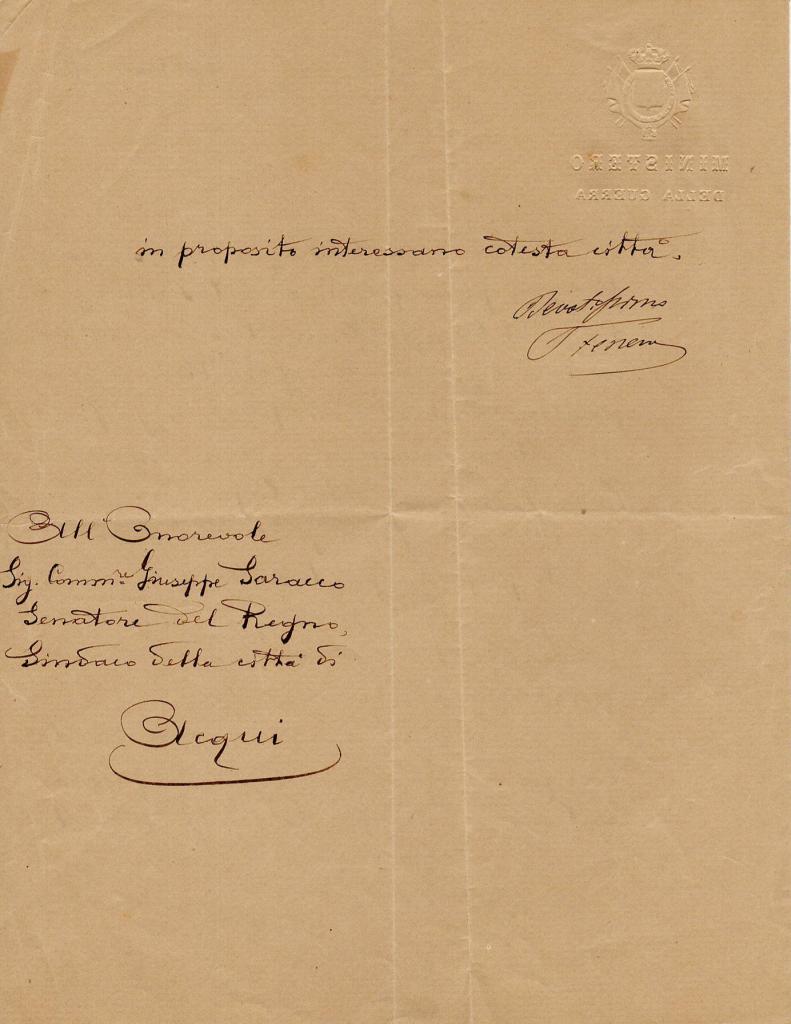 MINISTERO
DELLA GUERRA
in proposito interessano cotesta città.
Devotissimo
All' Onorevole
Sig. Comm.re Giuseppe Saracco
Senatore del Regno,
Sindaco della città di
Acqui